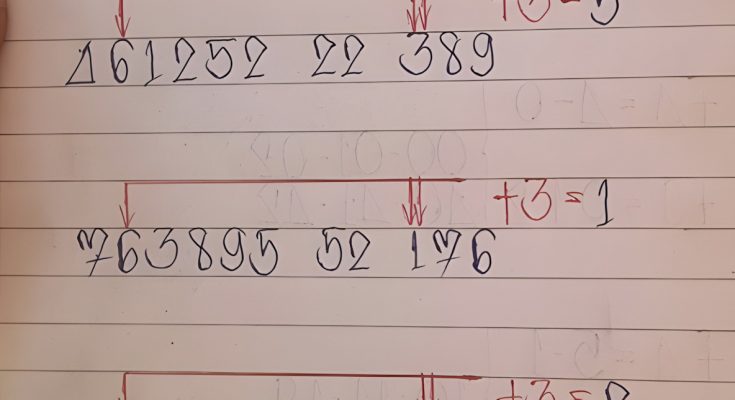 +3=5
461252 22 389
+3=1
763895 52 176
+3=